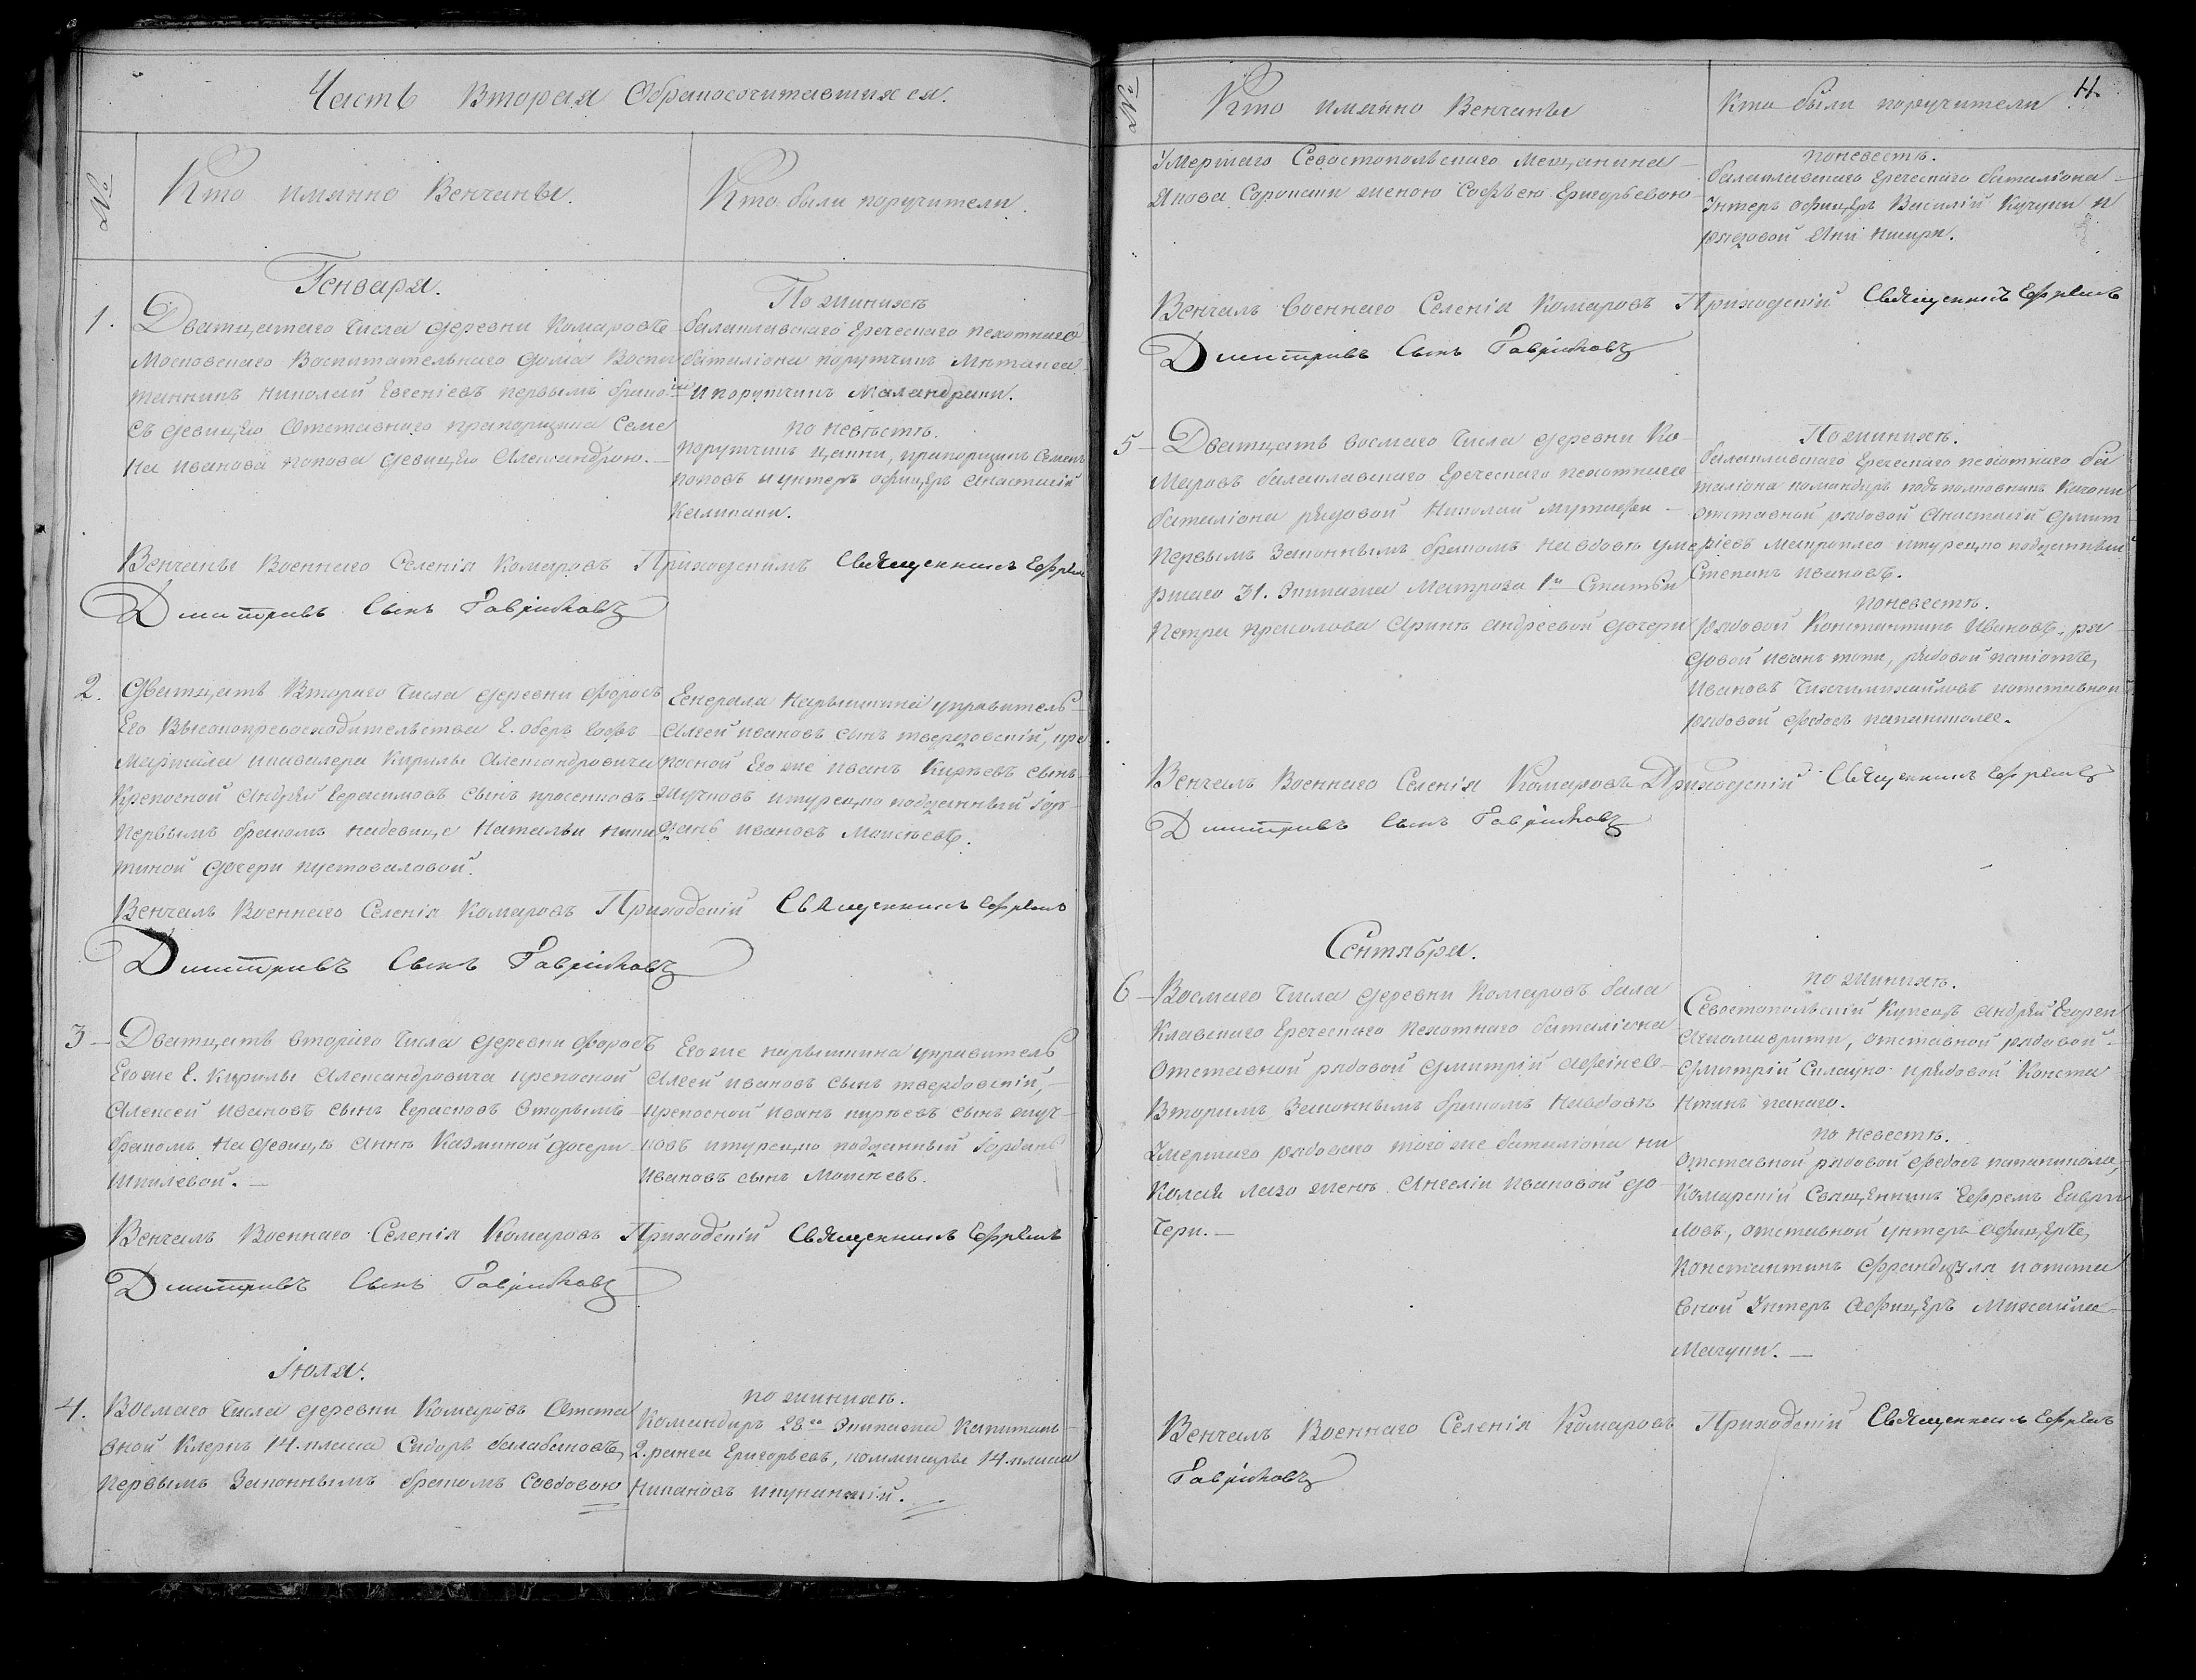 Часть Вторая Обракосочитавшихся.
№
Кто имянно Венчаны.
Кто были поручители.
Генваря.
1.
Дватцатаго Числа деревни Комаровъ
Московскаго Воспитательнаго дома Воспи
танникъ Николай Евсеніевъ первымъ брако
съ девицею Отставнаго прапорщика Семе
на Иванова попова девицею Александрою.
По женихѣ
балаклавскаго Греческаго пехотнаго
баталіона порутчикъ
и порутчикъ Маландраки.
По невѣстѣ.
порутчикъ цакни, прапорщикъ Семенъ
поповъ и унтеръ офицеръ Анастасій
Калипаки.
Венчаны Военнаго Селенія Комаровъ Приходскимъ Священникъ Ефремъ
Дмитривъ Сынъ Гавриловъ
2.
Дватцать Втораго Числа деревни Форосъ
Его Высокопревосходительства Г. оберъ Гофъ
Маршала икавалера Кирилы Александровича
Крепосной Андрей Герасимовъ сынъ
Первымъ бракомъ надевице Натальи Ники
тиной дочери пустоваловой.
Генерала Нарышкина управитель
Алсей Ивановъ сынъ твердовскій, кре
посной Его же иванъ Кирѣевъ сынъ
жучковъ итурецко подданный Гор
дань ивановъ Моисѣевъ.
Венчалъ Военнаго Селенія Комаровъ Приходскій Священникъ Ефремъ
Дмитривъ Сынъ Гавриловъ
3
Дватцать втораго Числа деревни Форосъ
Егоже Г. Кирилы Александровича крепосной
Алексей Ивановъ сынъ Герасковъ Вторымъ
бракомъ на девицѣ Аннѣ Казминой дочери
шпилевой.
Егоже нарышкина управитель
Алсей ивановъ сынъ твердовскій,
крепосной иванъ кирѣевъ сынъ жуч
ковъ итурецко подданный Горданъ
Ивановъ сынъ Моисѣевъ.
Венчалъ Военнаго Селенія Комаровъ Приходскій Священникъ Ефремъ
Дмитривъ Сынъ Гавриловъ
Іюля.
4.
Восмаго Числа деревни Комаровъ Отста
вной Клеркъ 14. класса Сидоръ балабановъ,
первымъ Законнымъ бракомъ Совдовою
по женихѣ.
Командиръ 28го Экипажа Капитанъ
2. ранга Григорьевъ, коммисары 14. класса
№
Кто имянно Венчаны
Кто были поручители
Умершаго Севостопольскаго Мещанина
Якова Сороки женою Софѣею Григорьевою
поневестѣ.
балаклавскаго Греческаго баталіона
Унтеръ офицеръ Василій Кучуки и
рядовой
Венчалъ Военнаго Селенія Комаровъ Приходскій Священникъ Ефремъ
Дмитривъ Сынъ Гавриловъ
5
Дватцать восмаго Числа деревни Ко
маровъ балаклавскаго Греческаго пехотнаго
баталіона рядовой Николай
Первымъ Законнымъ бракомъ навдовѣ уме
ршаго 31. Экипажа Матроза 1й Статьи
Петра Арине Андреевой дочери
По женихѣ.
балаклавскаго Греческаго пехотнаго ба
таліона командиръ подъполковникъ Качони
отставной рядовой Анастасій дмит
ріевъ итурецко подданный
Степанъ ивановъ.
поневестѣ.
рядовой Константинъ Ивановъ, ря
довой иванъ рядовой
Ивановъ иотставной
рядовой Федосъ папаниколае.
Венчалъ Военнаго Селенія Комаровъ Приходскій Священникъ Ефремъ
Дмитривъ Сынъ Гавриловъ
Сентября.
6
Восмаго Числа деревни Комаровъ бала
клавскаго Греческаго пехотнаго баталіона
Отставной рядовой дмитрій
Вторымъ Законнымъ бракомъ навдовѣ
Умершаго рядоваго тогоже баталіона ни
колая женѣ Ангеліи ивановой до
чери.
по женихѣ.
Севостопольскій Купецъ Андрей
отставной рядовой
дмитрій ирядовой Конста
нтинъ
по невестѣ.
Отставной рядовой Федосъ папаниколае,
Комарскій Священникъ Ефремъ Гаври
ловъ, отставной унтеръ офицеръ,
Константинъ иотста
вной Унтеръ Офицеръ Михайло
Венчалъ Военнаго Селенія Комаровъ Приходскій Священникъ Ефремъ
Гавриловъ